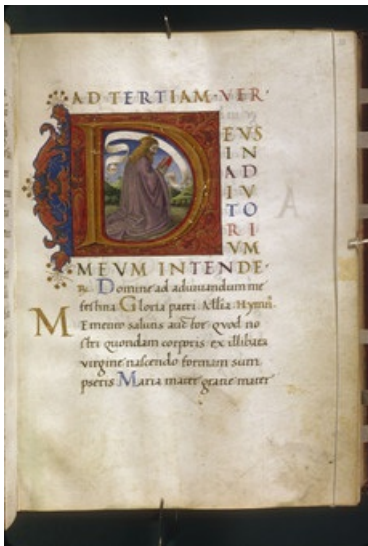 AD TERTIAM·VER·
D EVS
IN
AD
IV
TO
RI
VM
MEVM INTENDE·
R. Domine ad adiuuandum me
festina Gloria patri. Allia. Hymn
Memento salutis auctor quod no
stri quondam corporis ex illibata
virgine nascendo formam sum
pseris Maria mater gratie mater